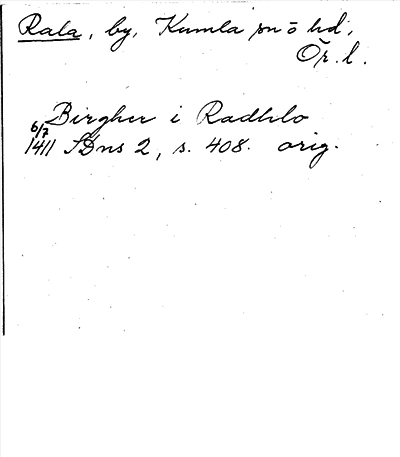 Rala, by, Kumla sn o hd,
Ör. l.
Birgher i Radhlo
6/7
1411 SDns 2, s. 408. orig.